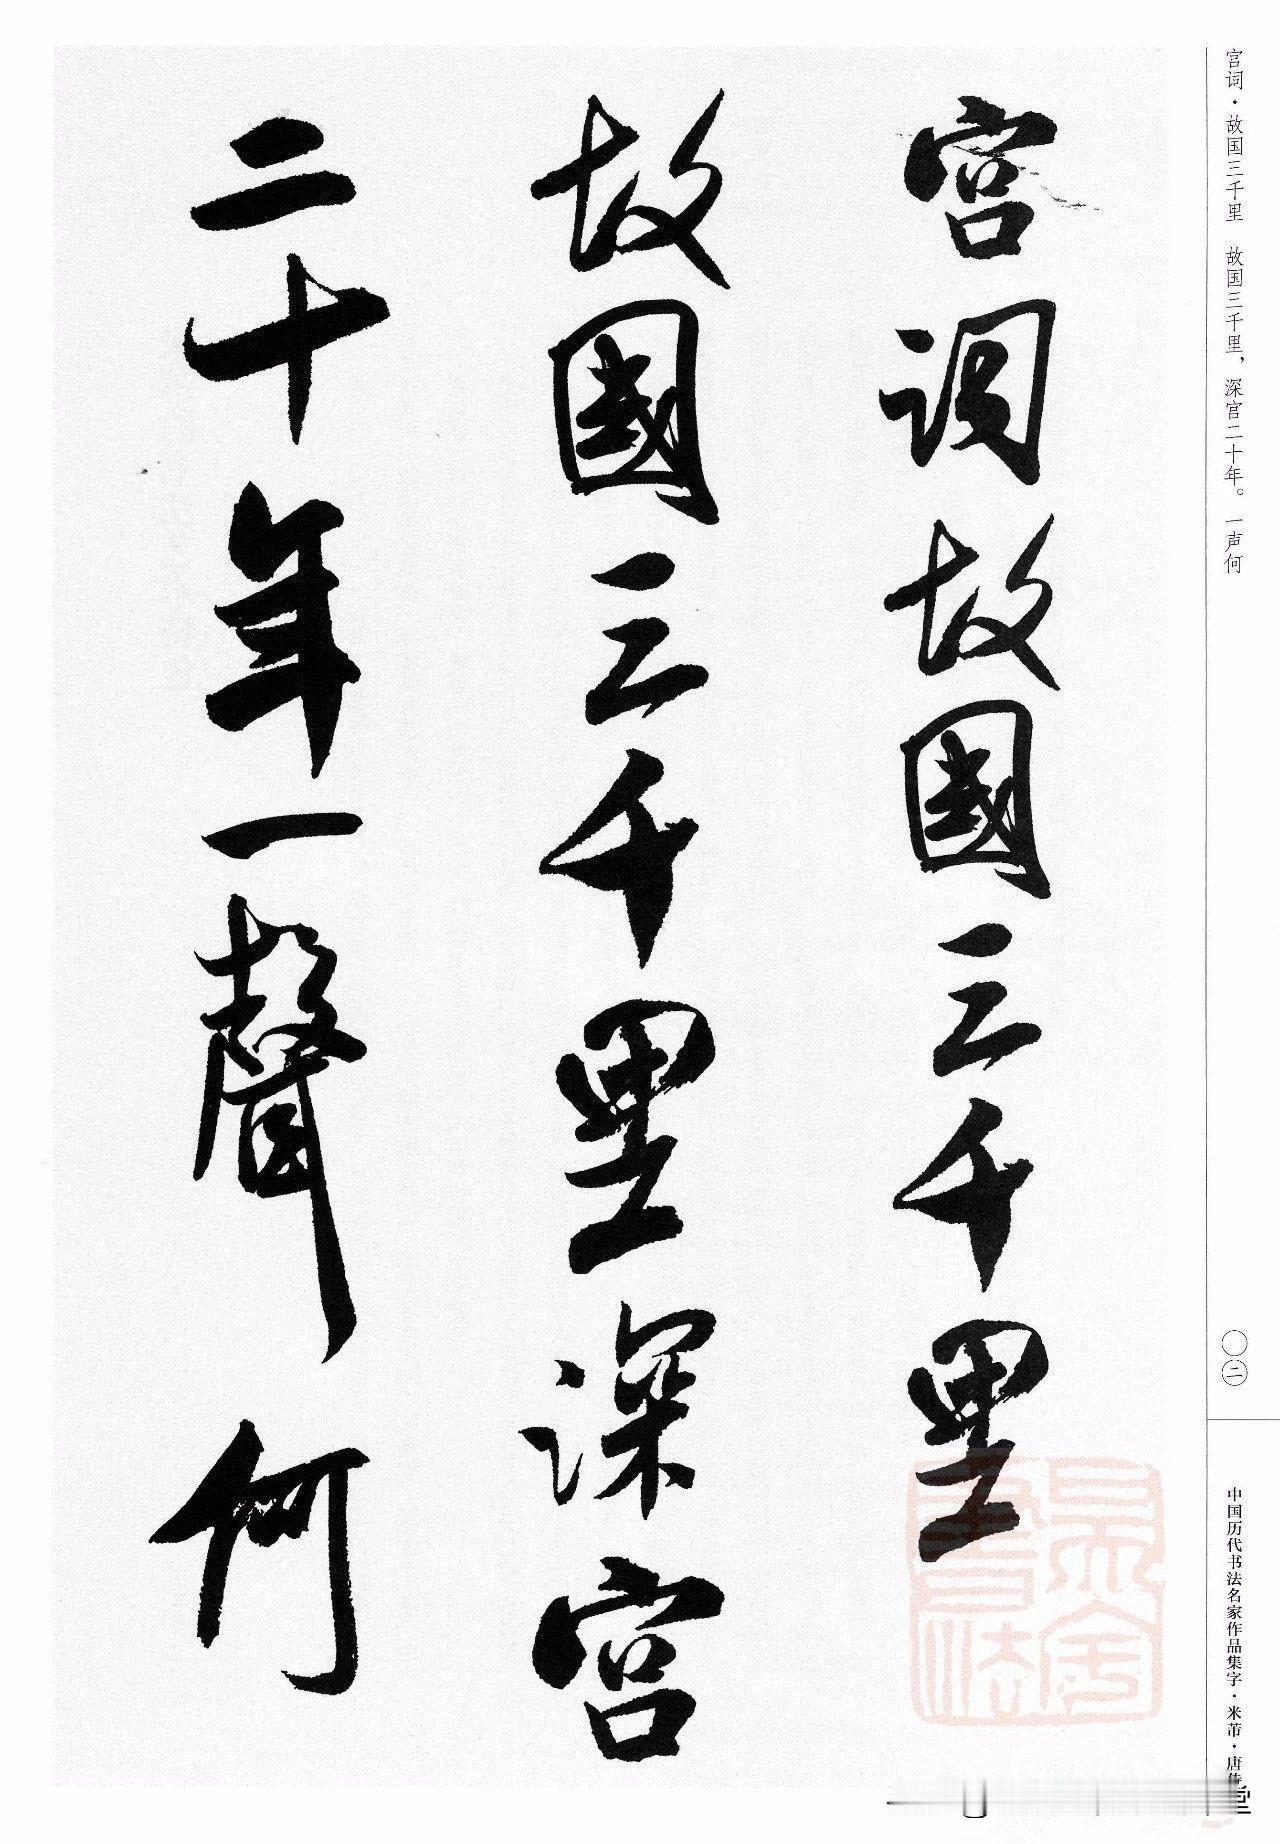 宫词·故国三千里　故国三千里，深宫二十年。一声何
宫词故國三千里
故國三千里深宫
二十年一聲何
〇二
中国历代书法名家作品集字·米芾·唐